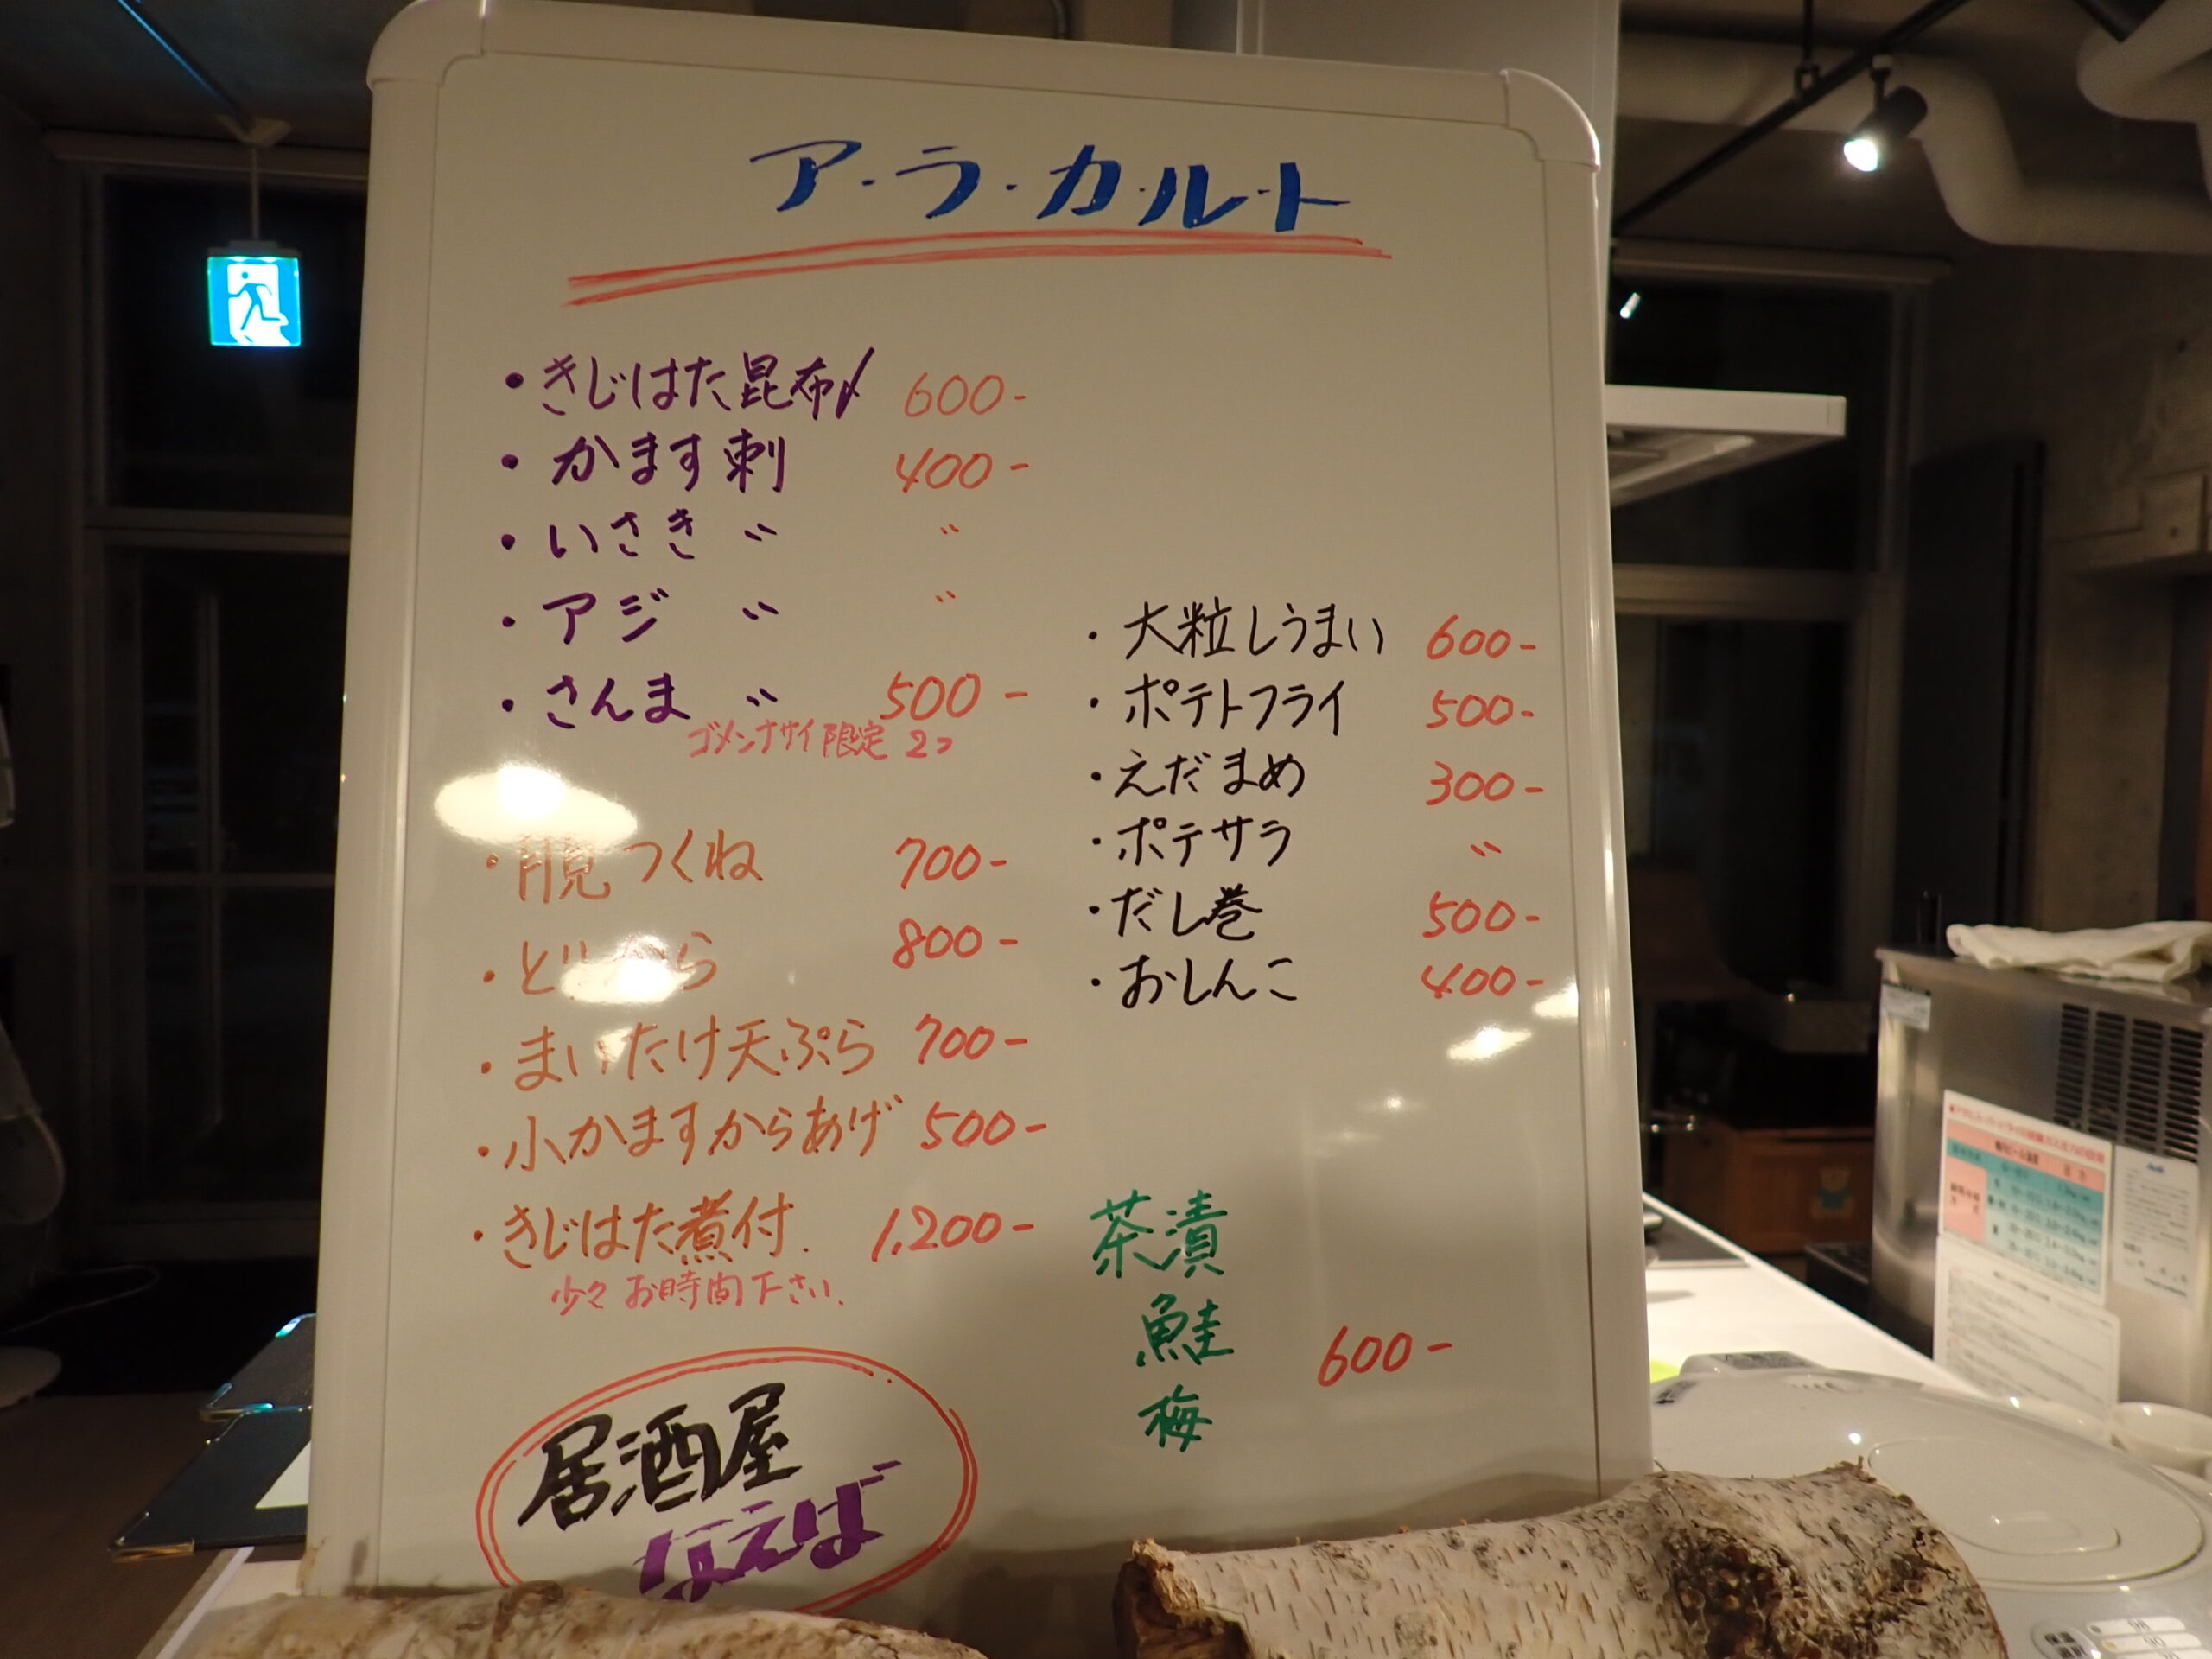 ア・ラ・カ・ル・ト
・きじはた昆布〆 600-
・かます刺 400-
・いさき 〃 〃
・アジ 〃 〃
・さんま 〃 500-
ゴメンナサイ限定 2つ
つくね 700-
800-
・まいたけ天ぷら 700-
・小かますからあげ 500-
・きじはた煮付. 1,200-
少々お時間下さい.
・大粒しうまい 600-
・ポテトフライ 500-
・えだまめ 300-
・ポテサラ 〃
・だし巻 500-
・おしんこ 400-
茶漬
鮭
600-
梅
居酒屋
なえば